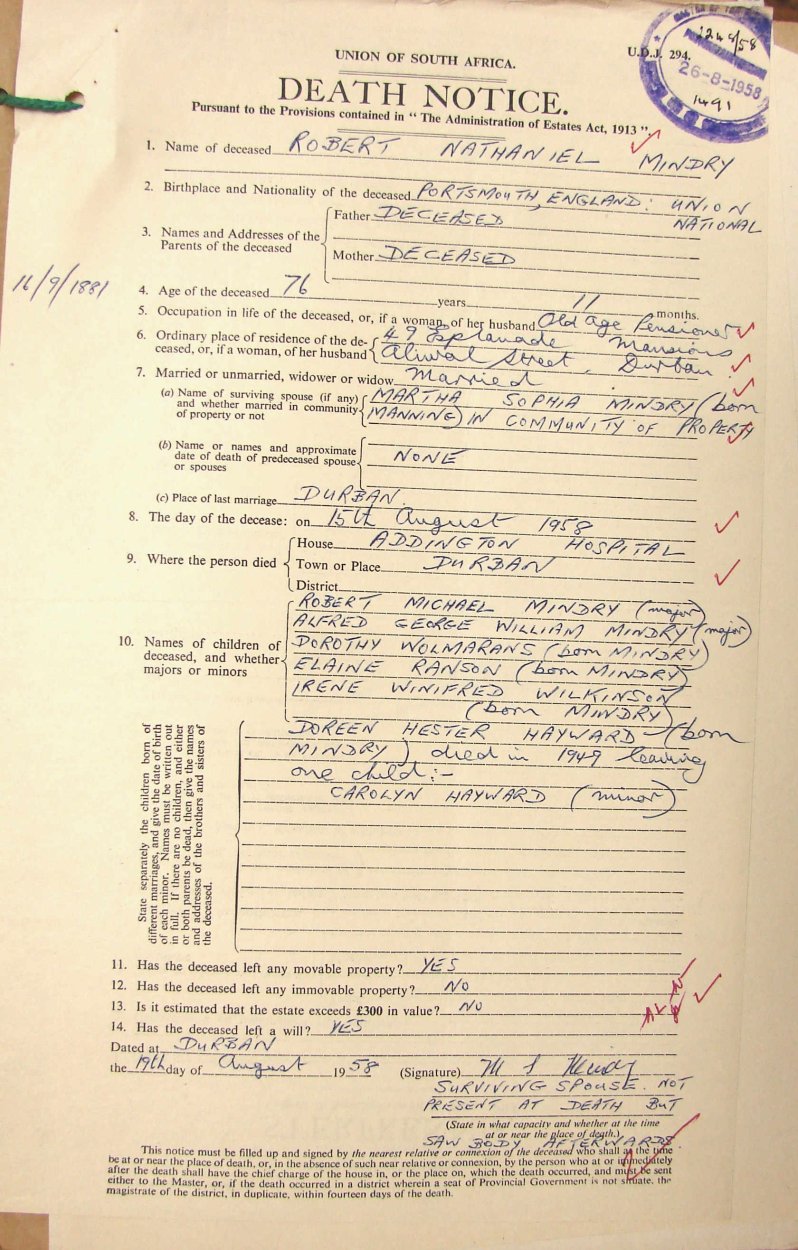 1248/58
MASTER OF THE
26-8-1958
1491
UNION OF SOUTH AFRICA.
U.D.J. 294.
DEATH NOTICE.
Pursuant to the Provisions contained in “ The Administration of Estates Act, 1913 ”.
1. Name of deceased ROBERT NATHANIEL MINDRY
2. Birthplace and Nationality of the deceased PORTSMOUTH, ENGLAND: UNION
NATIONAL
3. Names and Addresses of the Parents of the deceased
Father DECEASED
Mother DECEASED
16/9/1881
4. Age of the deceased 76 years 11 months.
5. Occupation in life of the deceased, or, if a woman, of her husband Old Age Pensioner
6. Ordinary place of residence of the de- 49 Esplanade Mansions
ceased, or, if a woman, of her husband Aliwal Street, Durban.
7. Married or unmarried, widower or widow Married
(a) Name of surviving spouse (if any) MARTHA SOPHIA MINDRY (born
and whether married in community MANNING) IN COMMUNITY OF PROPERTY
of property or not
(b) Name or names and approximate
date of death of predeceased spouse NONE
or spouses
(c) Place of last marriage DURBAN.
8. The day of the decease: on 15th August 1958
9. Where the person died
House ADDINGTON HOSPITAL
Town or Place DURBAN
District
10. Names of children of
deceased, and whether
majors or minors
ROBERT MICHAEL MINDRY (major)
ALFRED GEORGE WILLIAM MINDRY (major)
DOROTHY WOLMARANS (born MINDRY)
ELAINE RANSON (born MINDRY)
IRENE WINIFRED WILKINSON
(born MINDRY)
DOREEN HESTER HAYWARD (born
MINDRY) died in 1949 leaving
one child:-
CAROLYN HAYWARD (minor)
State separately the children born of
different marriages, and give the date of birth
of each minor. Names must be written out
in full. If there are no children, and either
or both parents be dead, then give the names
and addresses of the brothers and sisters of
the deceased.
11. Has the deceased left any movable property? YES
12. Has the deceased left any immovable property? NO
13. Is it estimated that the estate exceeds £300 in value? NO
14. Has the deceased left a will? YES
Dated at DURBAN
the 19th day of August 1958 (Signature) M S Mindry
SURVIVING SPOUSE. NOT
PRESENT AT DEATH BUT
(State in what capacity and whether at the time
at or near the place of death.)
SAW BODY AFTERWARDS.
This notice must be filled up and signed by the nearest relative or connexion of the deceased who shall at the time
be at or near the place of death, or, in the absence of such near relative or connexion, by the person who at or immediately
after the death shall have the chief charge of the house in, or the place on, which the death occurred, and must be sent
either to the Master, or, if the death occurred in a district wherein a seat of Provincial Government is not situate, the
magistrate of the district, in duplicate, within fourteen days of the death.